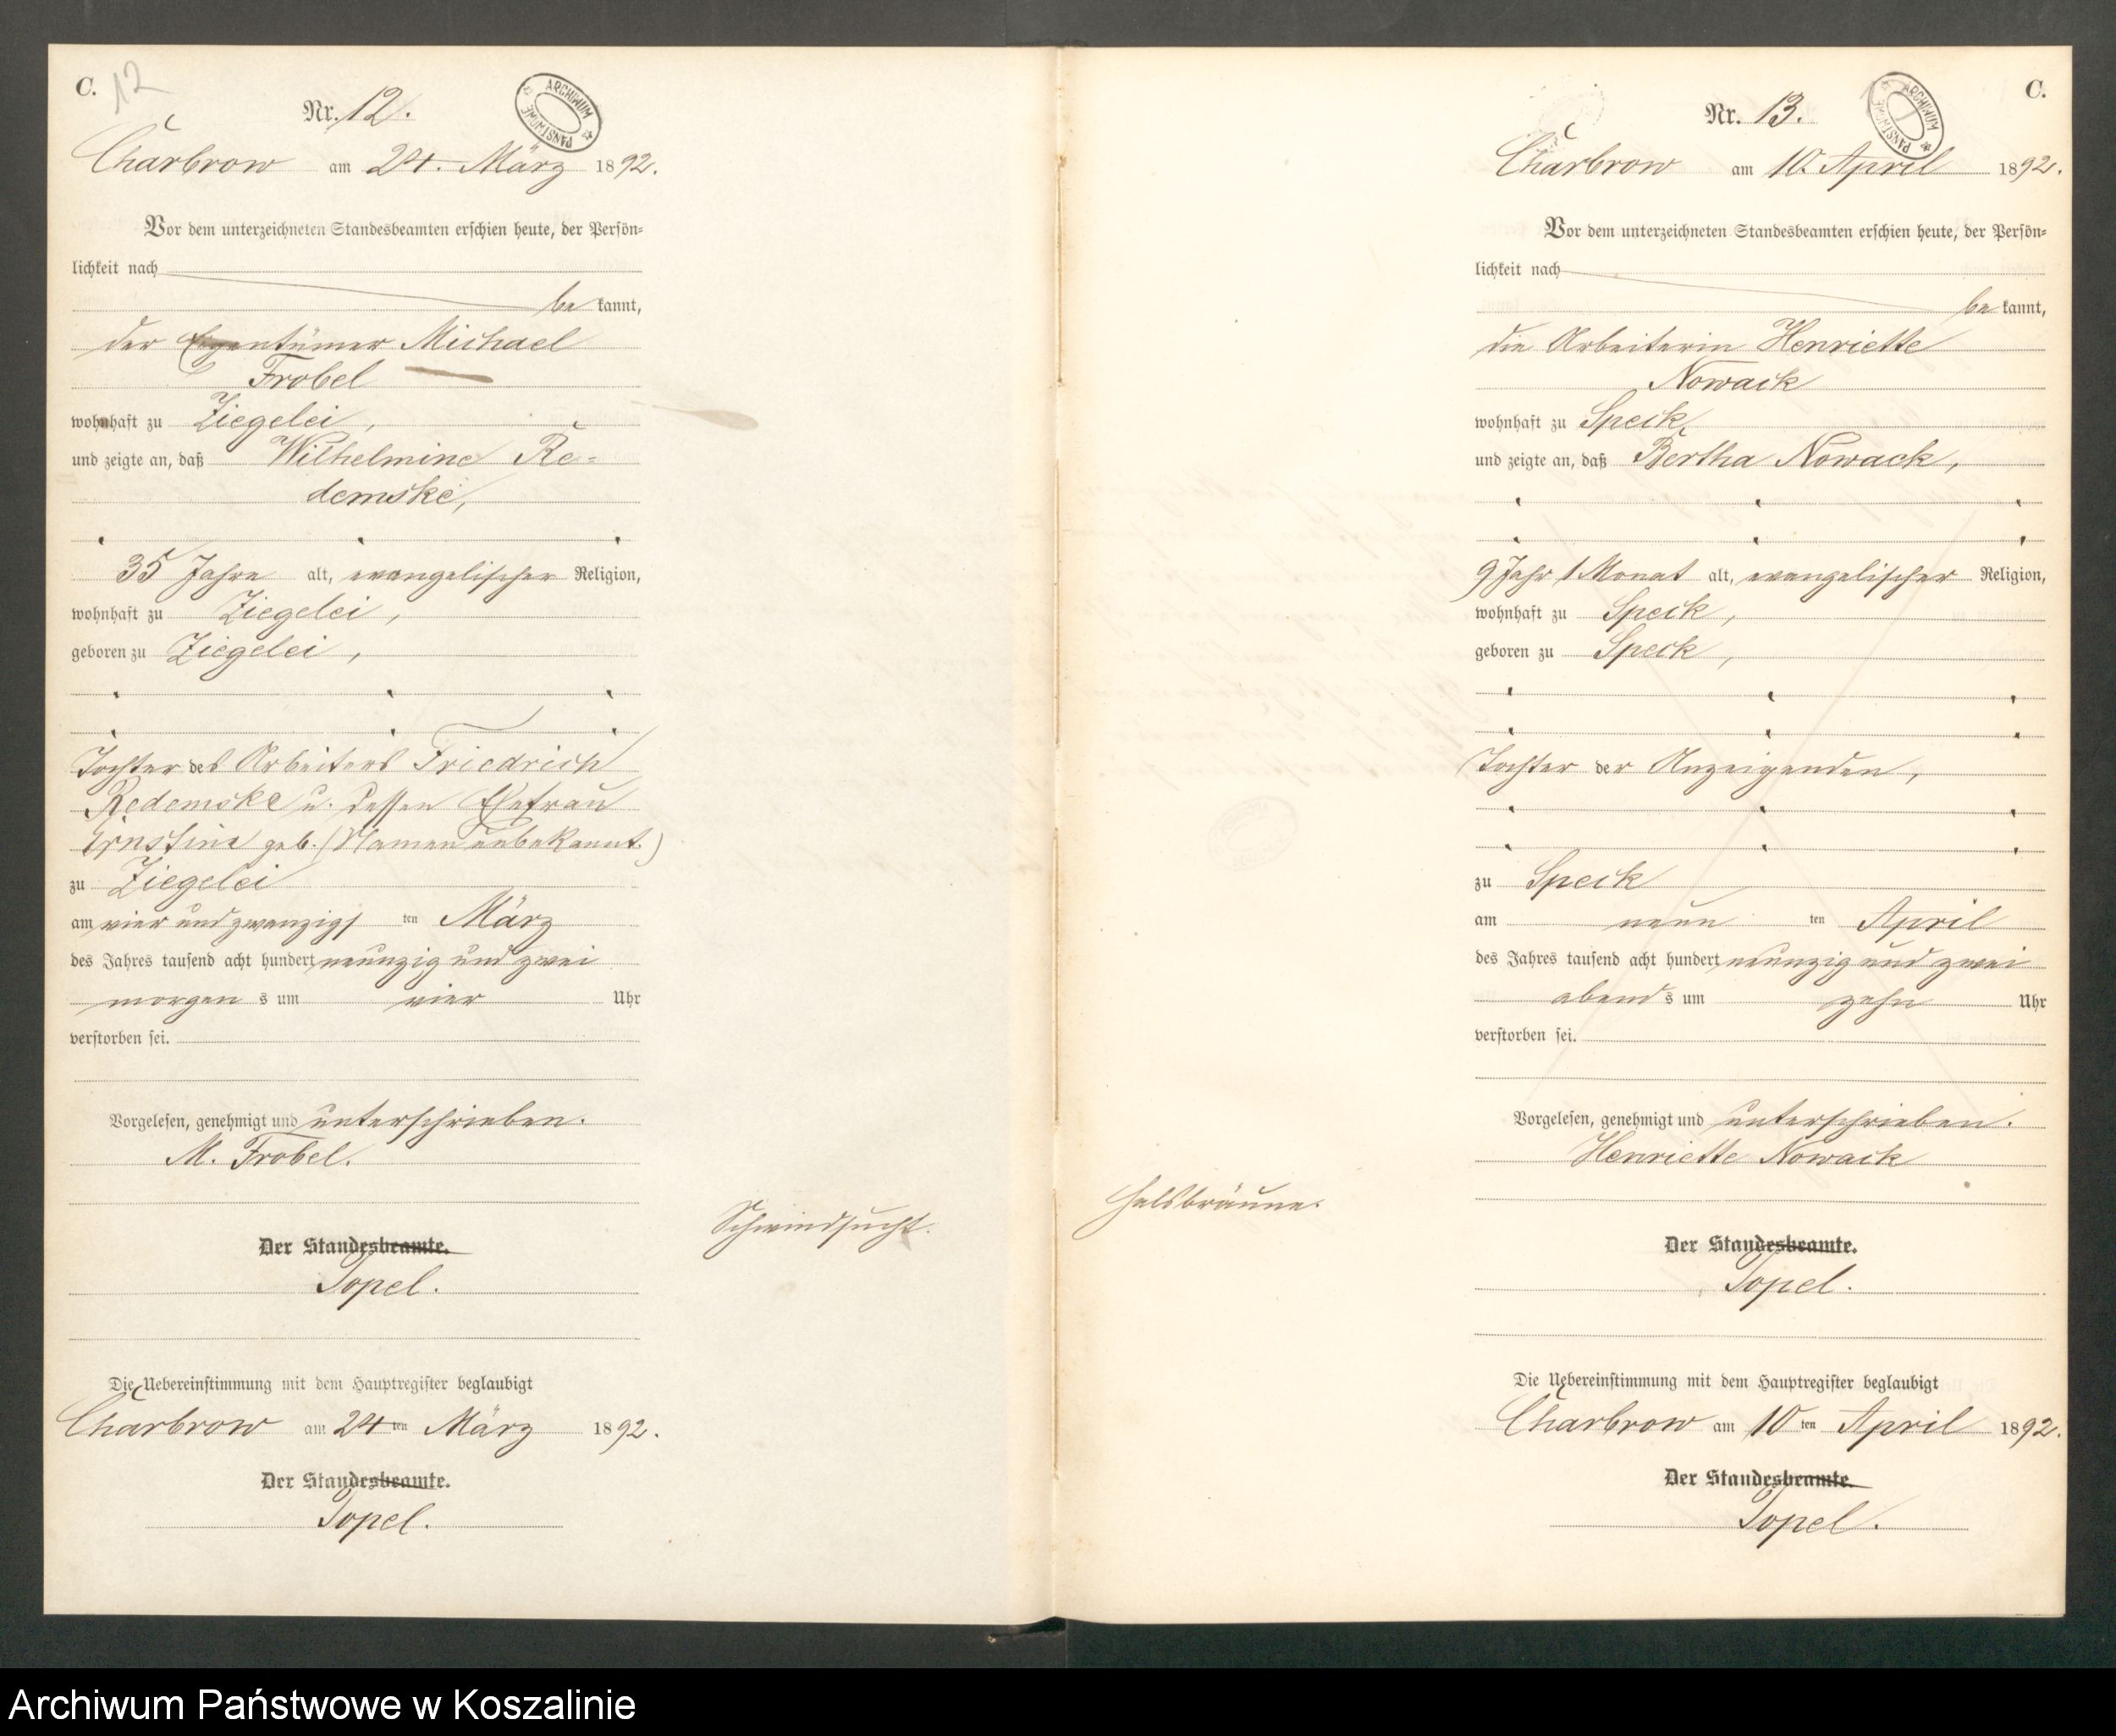 C. 12
Nr. 12.
ARCHIWUM PAŃSTWOWE
Charbrow am 24. März 1892.
Vor dem unterzeichneten Standesbeamten erschien heute, der Persön-
lichkeit nach
be kannt,
der Eigentümer Michael
Frobel
wohnhaft zu Ziegelei,
und zeigte an, daß Wilhelmine Re-
demske,
35 Jahre alt, evangelischer Religion,
wohnhaft zu Ziegelei,
geboren zu Ziegelei,
Tochter des Arbeiters Friedrich
Redemske u. dessen Ehefrau
Ernstine geb. (Namen unbekannt.)
zu Ziegelei
am vier und zwanzigs ten März
des Jahres tausend acht hundert neunzig und zwei
morgen s um vier Uhr
verstorben sei.
Vorgelesen, genehmigt und unterschrieben.
M. Frobel.
Schwindsucht.
Der Standesbeamte.
Topel.
Die Uebereinstimmung mit dem Hauptregister beglaubigt
Charbrow am 24 ten März 1892.
Der Standesbeamte.
Topel.
C.
Nr. 13.
ARCHIWUM PAŃSTWOWE
Charbrow am 10. April 1892.
Vor dem unterzeichneten Standesbeamten erschien heute, der Persön-
lichkeit nach
be kannt,
die Arbeiterin Henriette
Nowack
wohnhaft zu Speck,
und zeigte an, daß Bertha Nowack,
9 Jahr 1 Monat alt, evangelischer Religion,
wohnhaft zu Speck,
geboren zu Speck,
Tochter der Anzeigenden,
zu Speck
am neun ten April
des Jahres tausend acht hundert neunzig und zwei
abend s um zehn Uhr
verstorben sei.
Vorgelesen, genehmigt und unterschrieben.
Henriette Nowack
Halsbräune.
Der Standesbeamte.
Topel.
Die Uebereinstimmung mit dem Hauptregister beglaubigt
Charbrow am 10 ten April 1892.
Der Standesbeamte.
Topel.
Archiwum Państwowe w Koszalinie